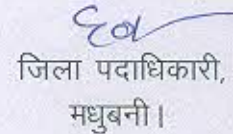 जिला पदाधिकारी,
मधुबनी।